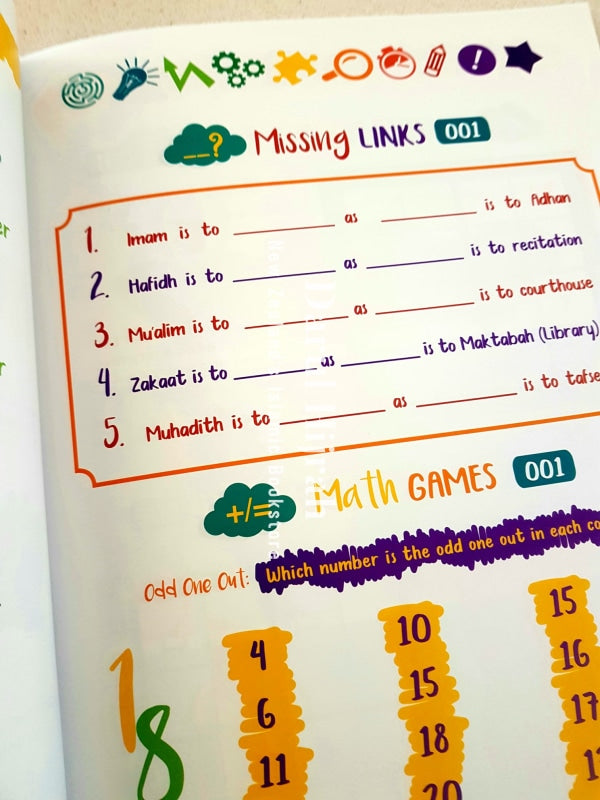 __?
Missing LINKS 001
1. Imam is to __________ as __________ is to Adhan
2. Hafidh is to __________ as __________ is to recitation
3. Mu'alim is to __________ as __________ is to courthouse
4. Zakaat is to __________ as __________ is to Maktabah (Library)
5. Muhadith is to __________ as __________ is to tafse
+/=
Math GAMES 001
Odd One Out: Which number is the odd one out in each co
4 10 15
6 15 16
11 18 17
20
18